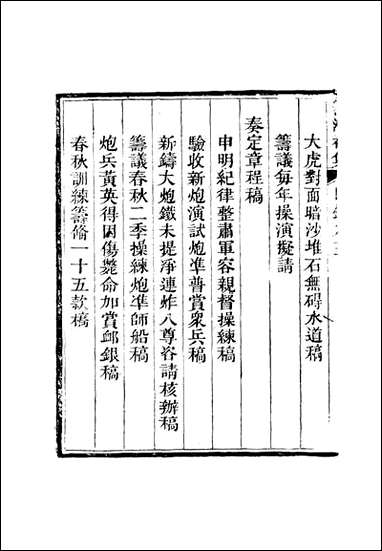 大虎對面暗沙堆石無碍水道稿
籌議每年操演擬請
奏定章程稿
申明紀律整肅軍容親督操練稿
驗收新炮演試炮準普賞衆兵稿
新鑄大炮鐵未提淨連炸八尊咨請核辦稿
籌議春秋二季操練炮準師船稿
炮兵黃英得因傷斃命加賞卹銀稿
春秋訓練籌備一十五款稿